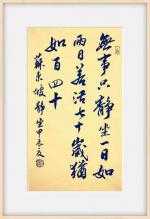 無事只靜坐一日如
兩日若活七十歲猶
如百四十
蘇東坡靜坐甲辰友